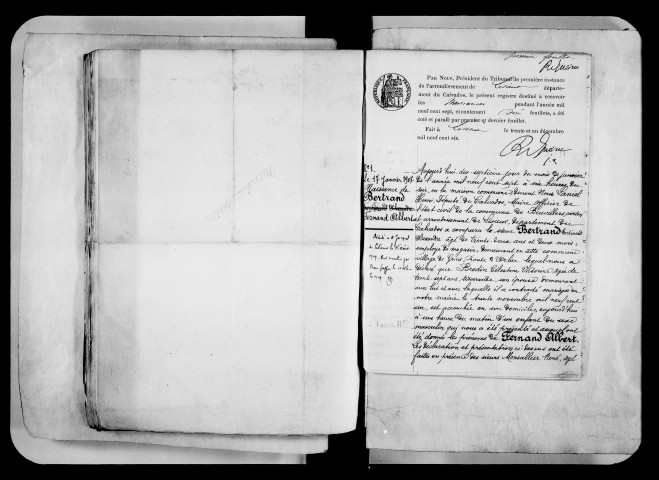 Premier feuillet
Par Nous, Président du Tribunal de première instance
de l'arrondissement de Lisieux départe-
ment du Calvados, le présent registre destiné à recevoir
les Naissances pendant l'année mil
neuf cent sept, et contenant feuillets, a été
coté et paraphé par premier et dernier feuillet.
Fait à Lisieux le trente et un décembre
mil neuf cent six.
N° 1.
Le 17 Janvier 1907
Naissance de
Bertrand
Fernand Albert
Aujourd'hui dix septième jour du mois de janvier
de l'année mil neuf cent sept à six heures du
soir, en la maison commune, devant Nous Laniel
Henri, Député du Calvados, Maire officier de
l'état civil de la commune de Beuvillers, canton
et arrondissement de Lisieux, département du
Calvados a comparu le sieur Bertrand
Alexandre âgé de trente deux ans et deux mois,
employé de magasin, demeurant en cette commune
village de Gare, route d'Orbec lequel nous a
déclaré que Brodin Célestine Victorine âgée de
trente sept ans, tisserande, son épouse demeurant
avec lui et avec laquelle il a contracté mariage en
notre mairie le trente novembre mil neuf cent
est accouchée en son domicile, aujourd'hui
à une heure du matin d'un enfant du sexe
masculin qui nous a été présenté et auquel ont
été donnés les prénoms de Fernand Albert.
Les déclaration et présentation ci-dessus ont été
faites en présence des sieurs René, âgé